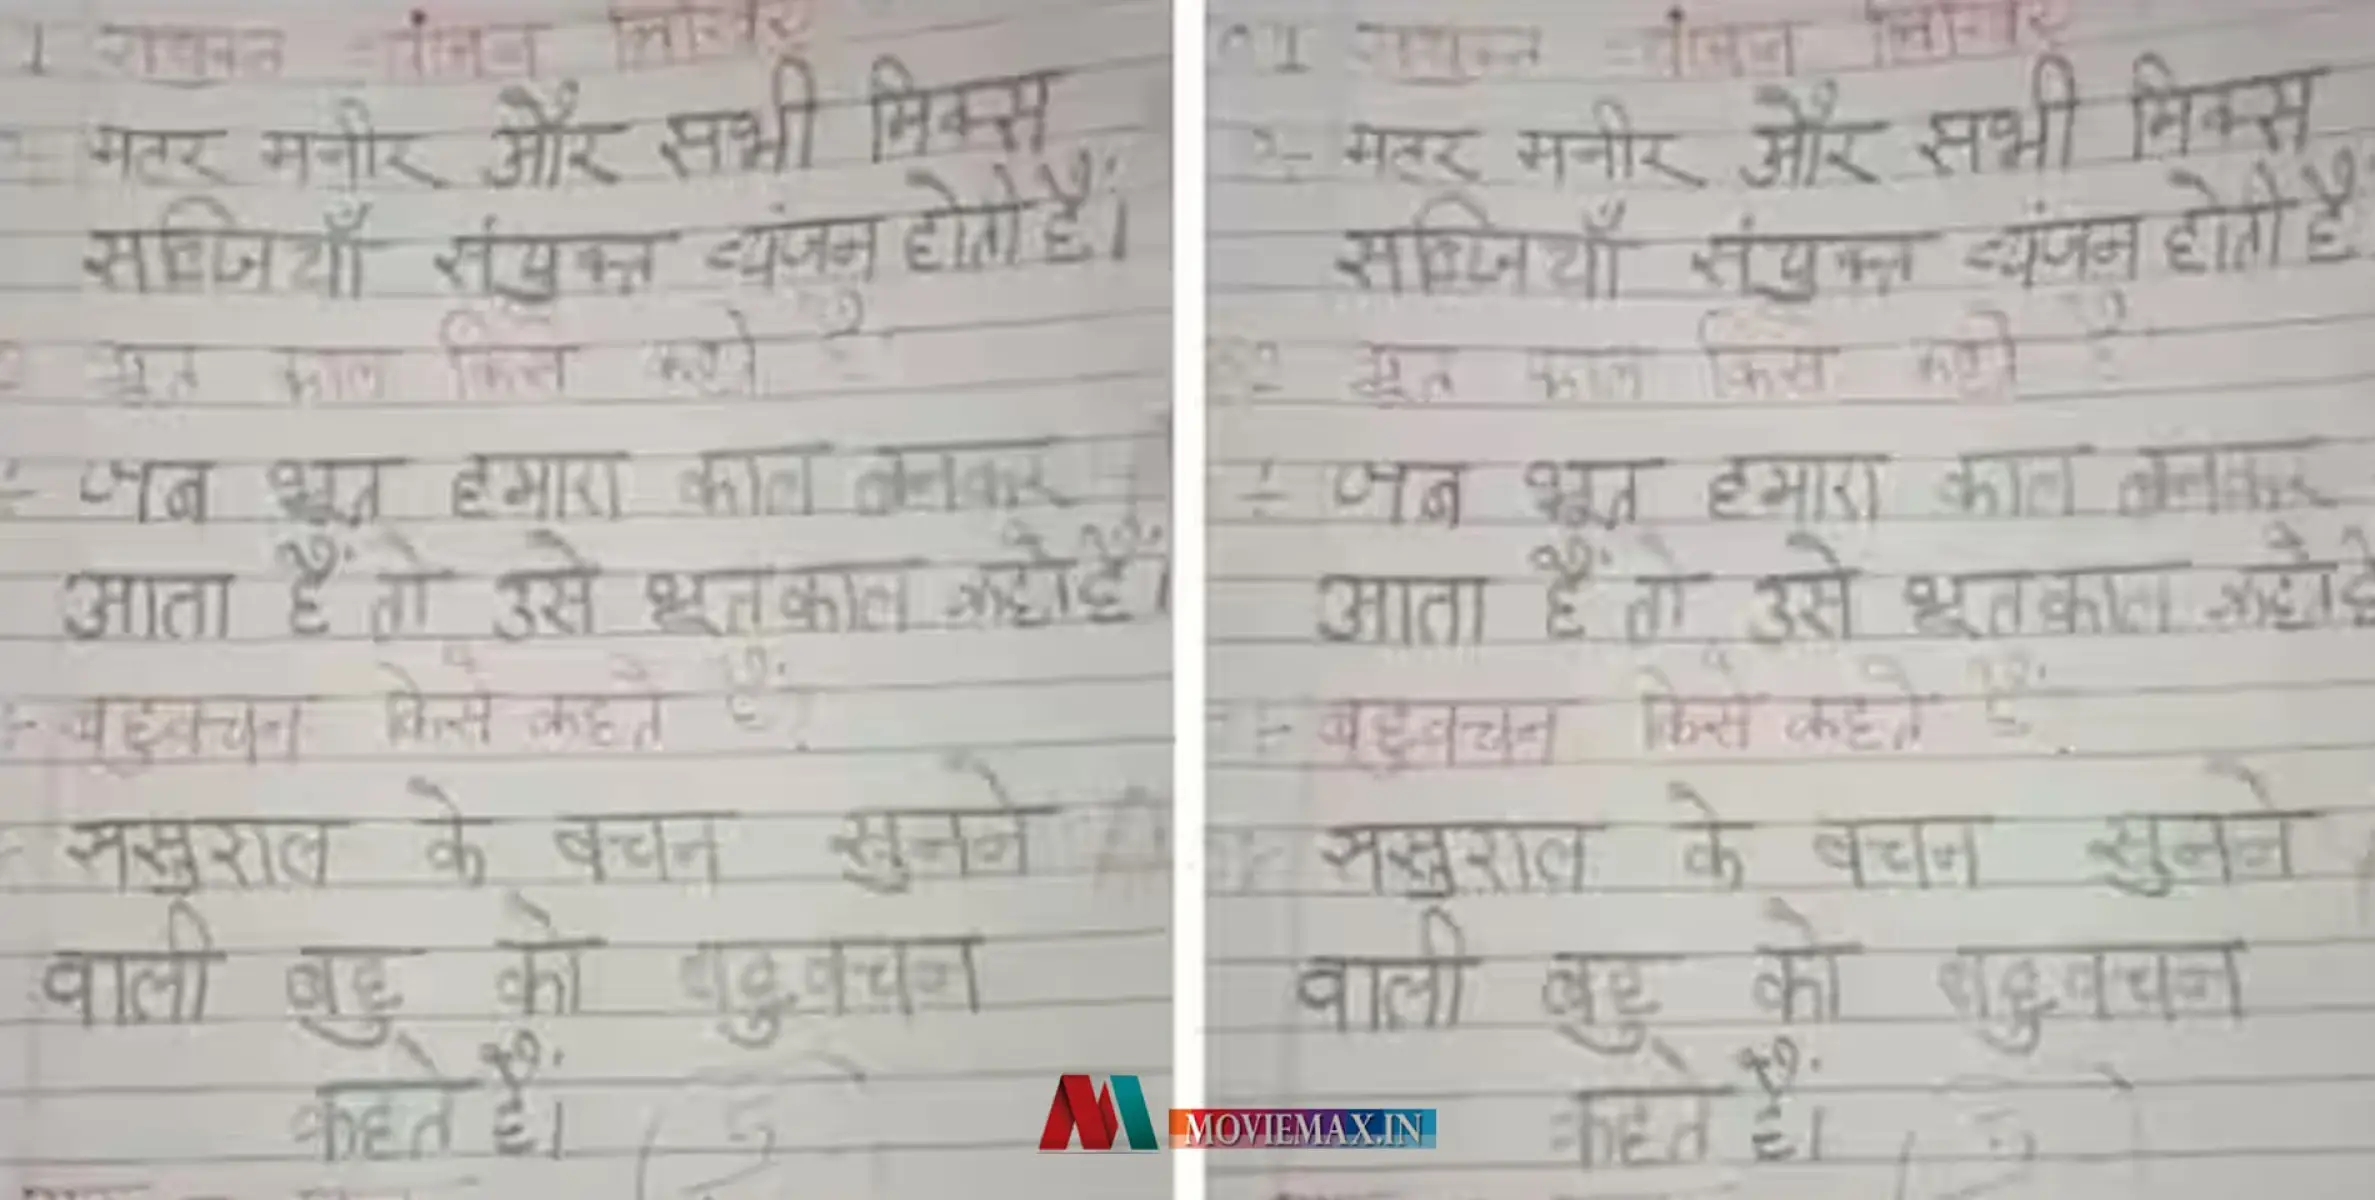 संयुक्त व्यंजन लिखिए
मटर मनीर और सभी मिक्स
सब्जियाँ संयुक्त व्यंजन होतो हैं।
भूत काल किसे कहते है
जब भूत हमारा काल बनकर
आता हैं तो उसे भूतकाल कहते हैं।
बहुवचन किसे कहते हैं.
ससुराल के वचन सुनने
वाली बहु को बहुवचन
कहते हैं।
संयुक्त व्यंजन लिखिए
मटर मनीर और सभी मिक्स
सब्जियाँ संयुक्त व्यंजन होती है
भूत काल किसे कहते है
जब भूत हमारा काल बनकर
आता हैं तो उसे भूतकाल कहते है
बहुवचन किसे कहते हैं.
ससुराल के वचन सुनने
वाली बहु को बहुवचन
कहते हैं।
MOVIEMAX.IN